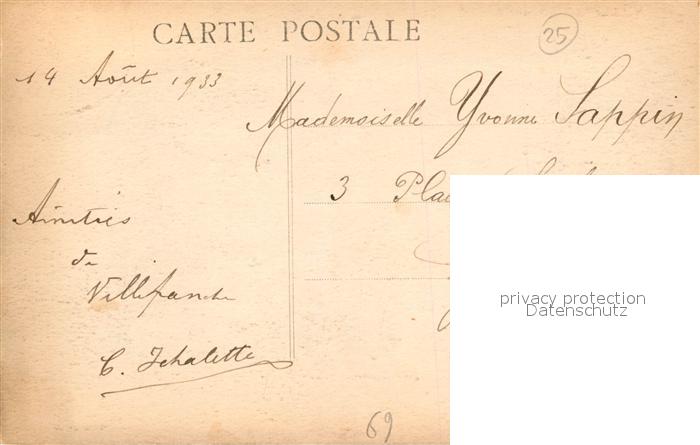 CARTE POSTALE
25
14 Août 1933
Mademoiselle Yvonne Sappin
3 Plac
Amitiés
de
Villefranche
69
privacy protection
Datenschutz